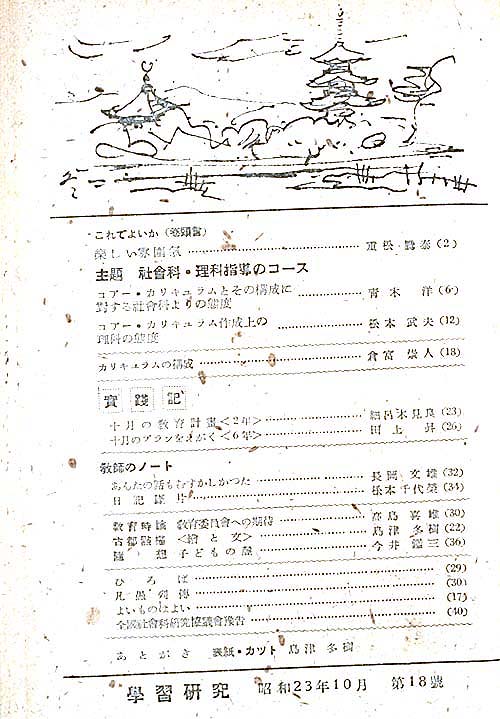 これでよいか（巻頭言）
楽しい雰圍氣 重松鷹泰（2）
主題 社會科・理科指導のコース
コアー・カリキュラムとその構成に
對する社會科よりの態度 青木 洋（6）
コアー・カリキュラム作成上の
理科の態度 松本武夫（12）
カリキュラムの構成 倉富崇人（18）
實踐記
十月の教育計畫＜2年＞ 細呂木見良（23）
十月のプランをえがく＜6年＞ 田上 昇（26）
教師のノート
あんたの話もむずかしかつた 長岡文雄（32）
日記斷片 松本千代榮（34）
教育時論 教育委員会への期待 高島喜雄（30）
古都 ＜繪と文＞ 島津多樹（22）
隨想 子どもの 今井鑑三（36）
ひろば （29）
凡愚列傳 （30）
よいものはよい （17）
全國社會科研究協議會豫告 （40）
あとがき 表紙・カツト 島津多樹
學習研究 昭和23年10月 第18號